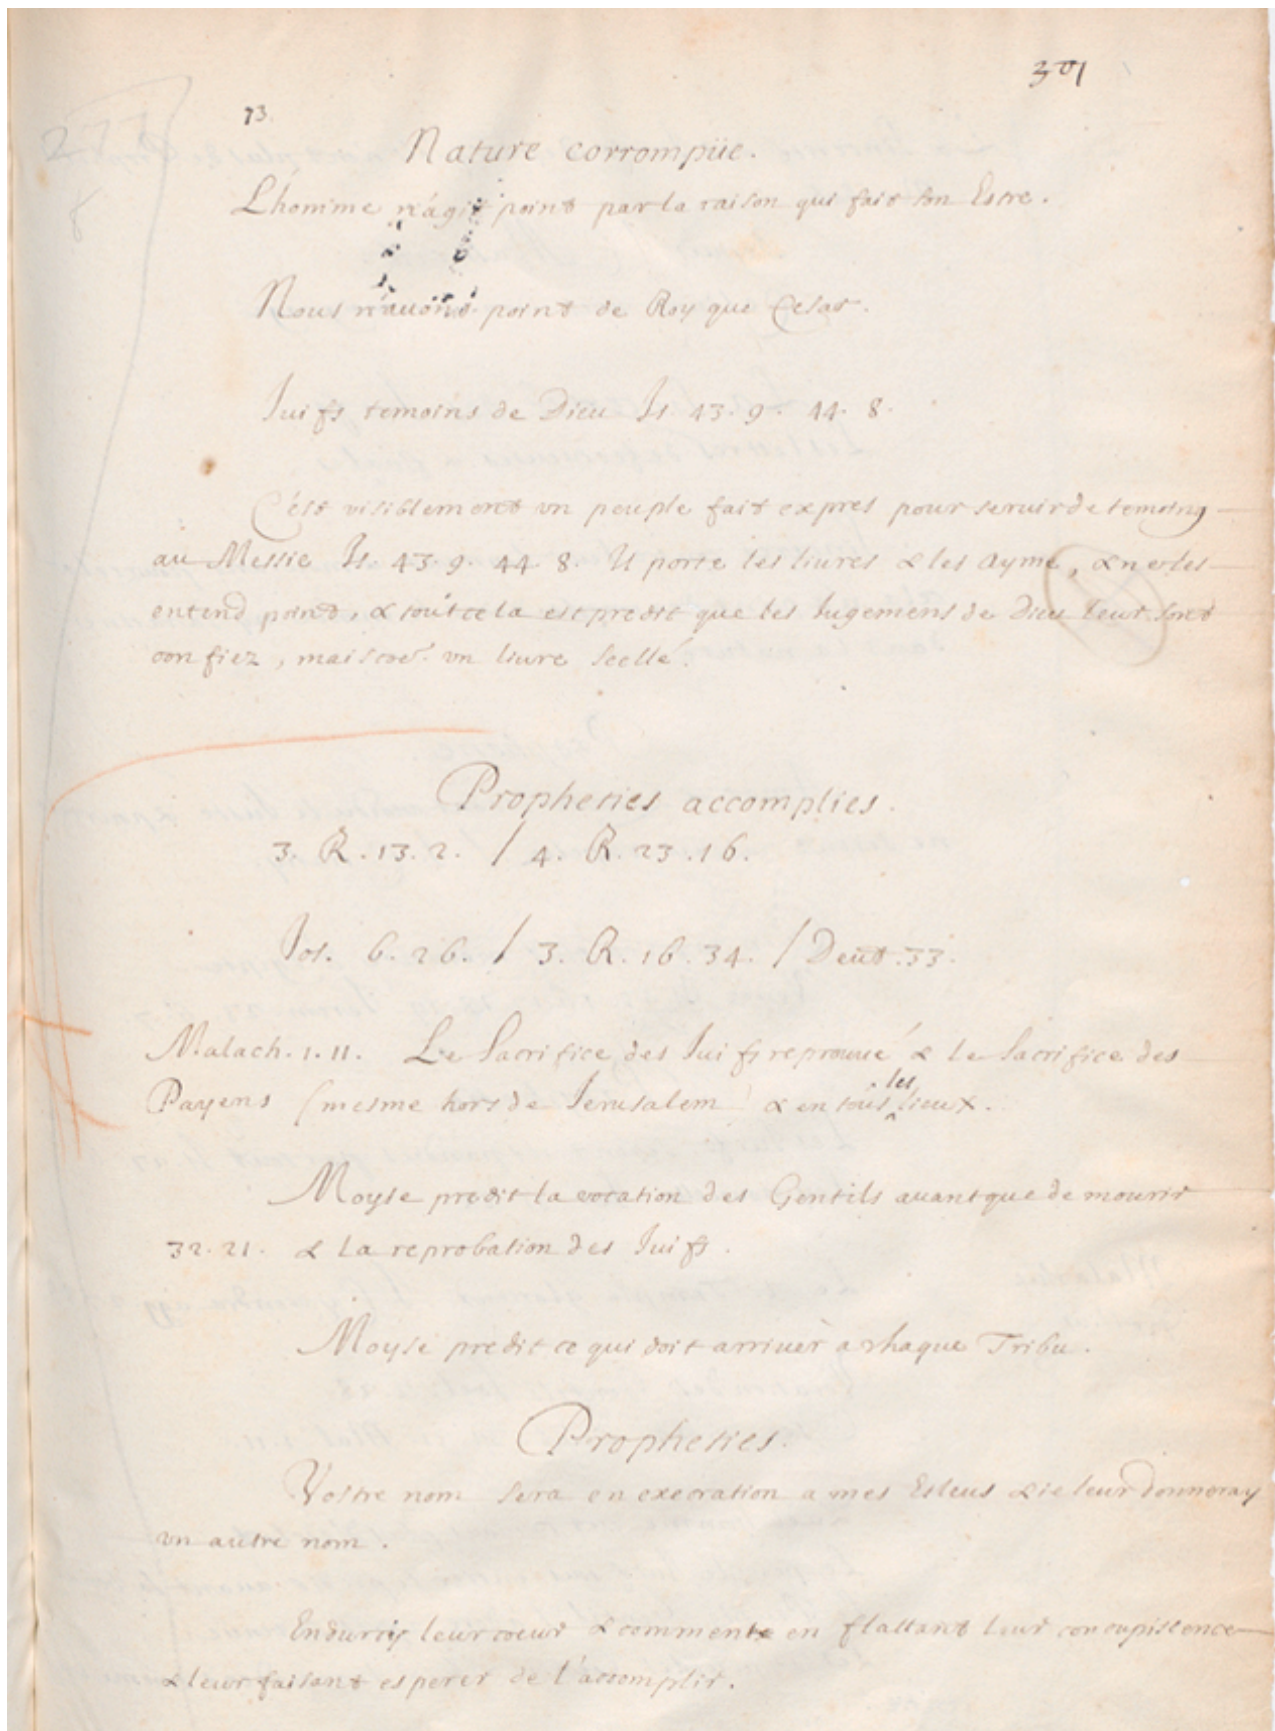 301
277
8
73.
Nature corrompüe.
L'homme n'agit point par la raison qui fait son Estre.
Nous n'auons point de Roy que Cesar.
Iuifs temoins de Dieu Is. 43. 9. 44. 8.
C'est visiblement vn peuple fait expres pour seruir de temoing
au Messie Is. 43. 9. 44. 8. Il porte les liures & les ayme, & ne les
entend point, & tout cela est predit que les Iugemens de Dieu leur sont
confiez, mais coē. vn liure scellé.
Propheties accomplies.
3. R. 13. 2. / 4. R. 23. 16.
Ios. 6. 26. / 3. R. 16. 34. / Deut. 33.
Malach. 1. 11. Le Sacrifice des Iuifs reprouué & le Sacrifice des
Payens (mesme hors de Ierusalem) & en tous les lieux.
Moyse predit la vocation des Gentils auant que de mourir
32. 21. & la reprobation des Iuifs.
Moyse predit ce qui doit arriuer a chaque Tribu.
Propheties.
Vostre nom sera en execration a mes Esleus & ie leur donneray
vn autre nom.
Endurcis leur coeur & comment en flattant leur concupiscence
& leur faisant esperer de l'accomplir.